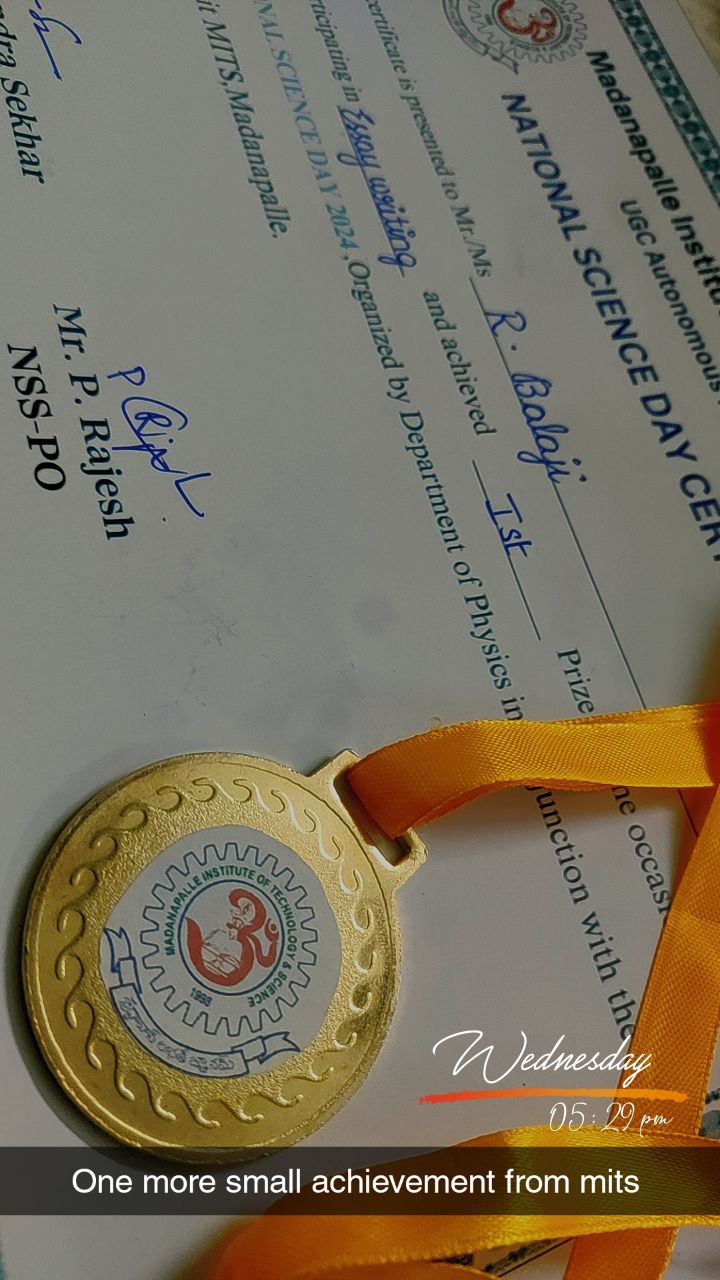 Madanapalle Institu
UGC Autonomous
NATIONAL SCIENCE DAY CER
certificate is presented to Mr./Ms R. Balaji
participating in Essay writing and achieved Ist Prize
he occasi
NAL SCIENCE DAY 2024, Organized by Department of Physics in
junction with the
it MITS, Madanapalle.
P Rajesh
Mr. P. Rajesh
NSS-PO
dra Sekhar
MADANAPALLE INSTITUTE OF TECHNOLOGY & SCIENCE
1998
Wednesday
05:29 pm
One more small achievement from mits